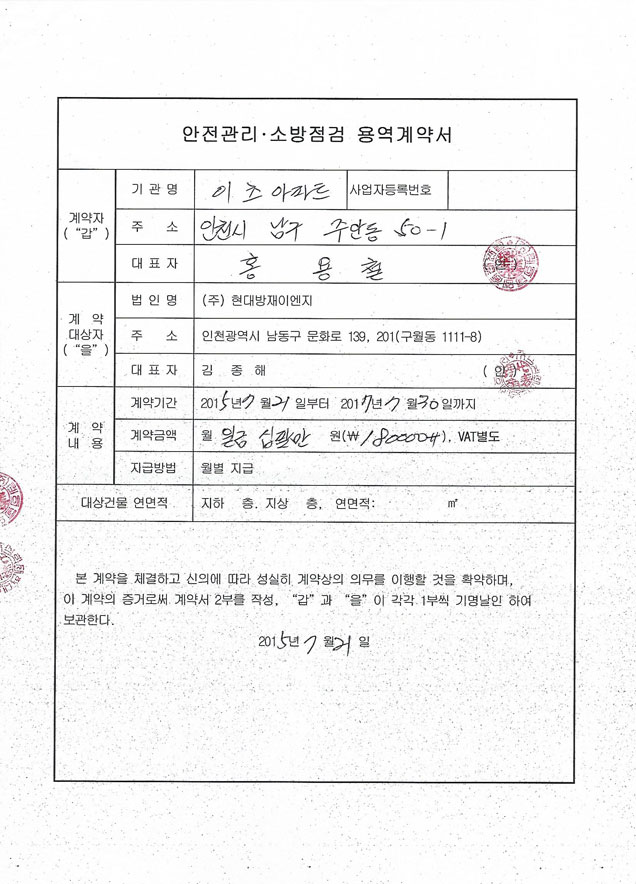 안전관리·소방점검 용역계약서
계약자
("갑")
기 관 명 이 즈 아파트 사업자등록번호
주 소 인천시 남구 주안동 50-1
대 표 자 홍 용 철 (인)
계 약
대상자
("을")
법 인 명 (주) 현대방재이엔지
주 소 인천광역시 남동구 문화로 139, 201(구월동 1111-8)
대 표 자 김 종 해 (인)
계 약
내 용
계약기간 2015년 7 월 21 일부터 2017년 7 월 30 일까지
계약금액 월 일금 십팔만 원(₩ 180000 ), VAT별도
지급방법 월별 지급
대상건물 연면적 지하 층, 지상 층, 연면적: ㎡
본 계약을 체결하고 신의에 따라 성실히 계약상의 의무를 이행할 것을 확약하며,
이 계약의 증거로써 계약서 2부를 작성, "갑"과 "을"이 각각 1부씩 기명날인 하여
보관한다.
2015년 7 월 21 일